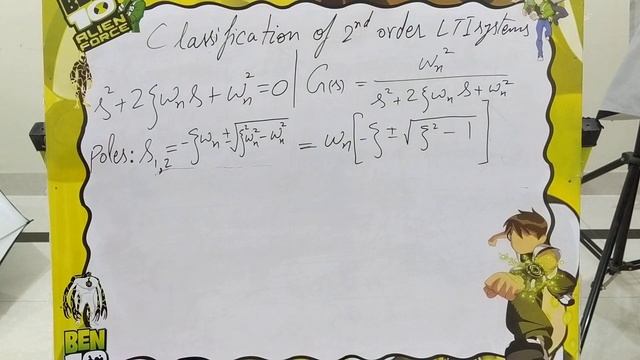 BEN 10
ALIEN FORCE
Classification of 2nd order LTI systems
s² + 2ξωₙs + ωₙ² = 0 | G(s) = ωₙ² / (s² + 2ξωₙs + ωₙ²)
Poles: s₁,₂ = -ξωₙ ± √(ξ²ωₙ² - ωₙ²) = ωₙ[-ξ ± √(ξ² - 1)]
BEN
10